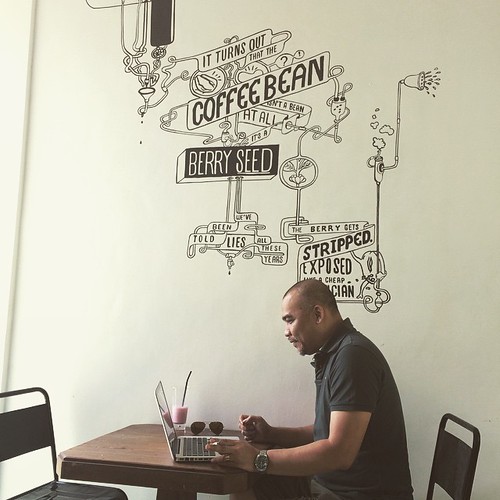 IT TURNS OUT
THAT THE
COFFEE BEAN
ISN'T A BEAN
AT ALL
IT'S A
BERRY SEED
WE'VE
BEEN
TOLD LIES ALL
THESE
YEARS
THE BERRY GETS
STRIPPED,
EXPOSED
LIKE A CHEAP